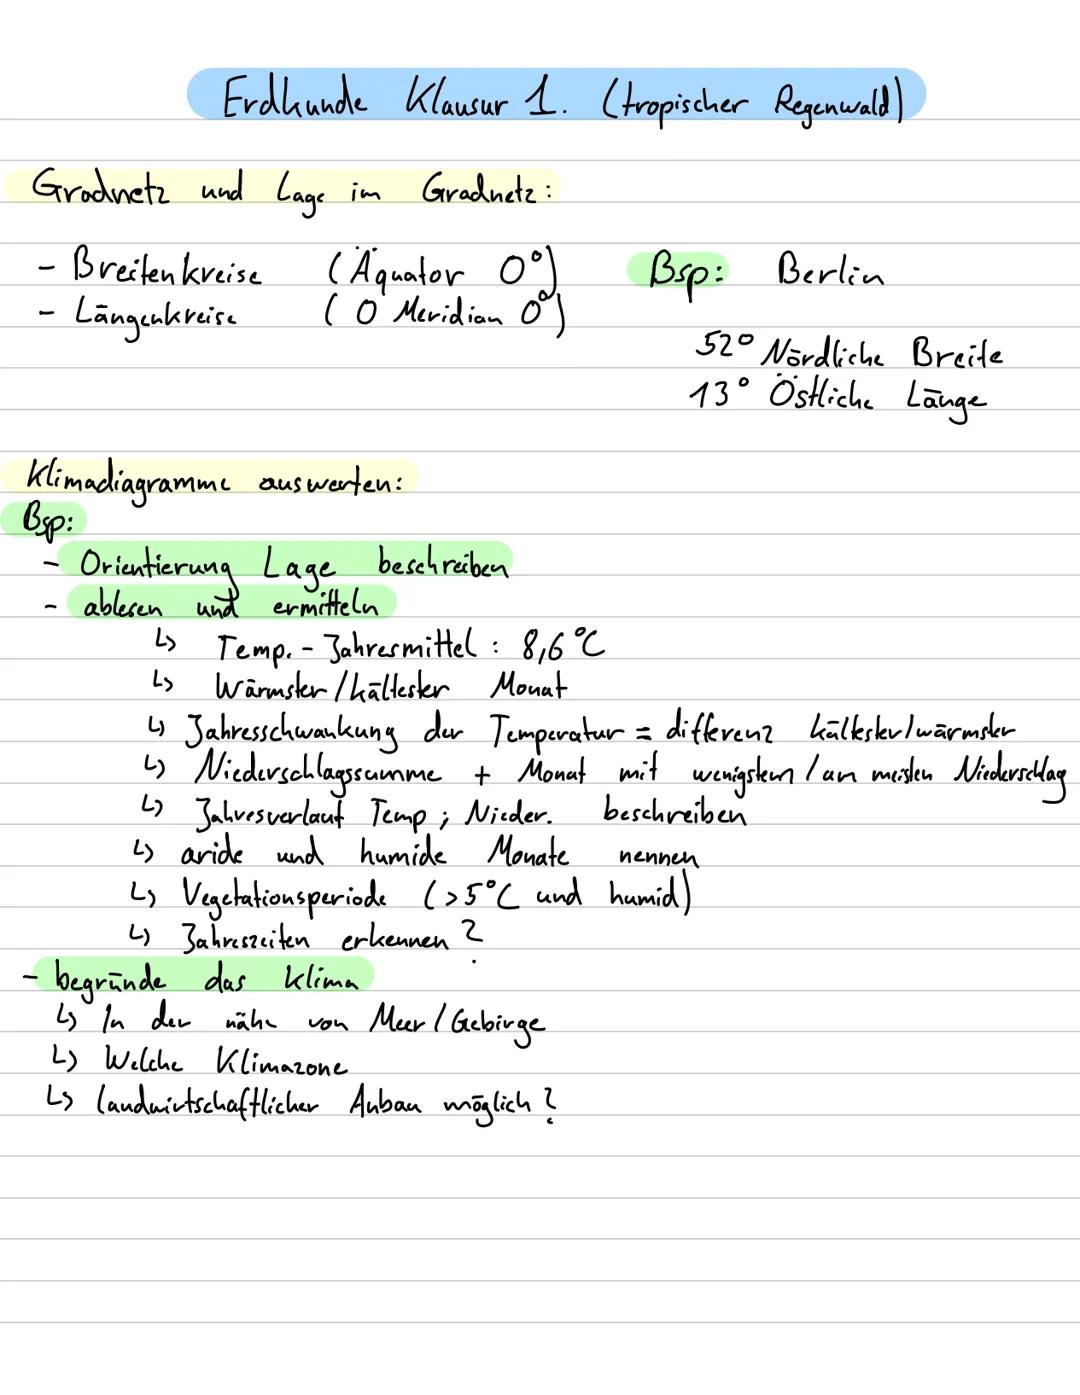 Erdkunde Klausur 1. (tropischer Regenwald)
Gradnetz und Lage im Gradnetz:
- Breitenkreise (Äquator 0°)
- Längenkreise (0 Meridian 0°)
Bsp: Berlin
52° Nördliche Breite
13° Östliche Länge
Klimadiagramme auswerten:
Bsp:
- Orientierung Lage beschreiben
- ablesen und ermitteln
↳ Temp. - Jahresmittel : 8,6°C
↳ Wärmster/kältester Monat
↳ Jahresschwankung der Temperatur = differenz kältester/wärmster
↳ Niederschlagssumme + Monat mit wenigstem / am meisten Niederschlag
↳ Jahresverlauf Temp ; Nieder. beschreiben
↳ aride und humide Monate nennen
↳ Vegetationsperiode (>5°C und humid)
↳ Jahreszeiten erkennen ?
- begründe das Klima
↳ In der nähe von Meer / Gebirge
↳ Welche Klimazone
↳ landwirtschaftlicher Anbau möglich ?